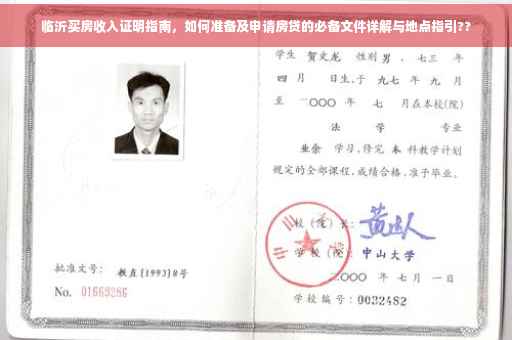 临沂买房收入证明指南，如何准备及申请房贷的必备文件详解与地点指引??
学生 贺文龙 性别 男，七三 年
四 月 日生，于 九七 年 九 月
至 二〇〇〇 年 七 月在本校(院)
法 学 专业
业余 学习，修完 本 科教学计划
规定的全部课程，成绩合格，准予毕业。
校（院）长：
学 校（院） 中山大学
批准文号： 教直[1993]8号
二〇〇〇 年 七 月 一 日
No. 01669286
学校编号：0032482